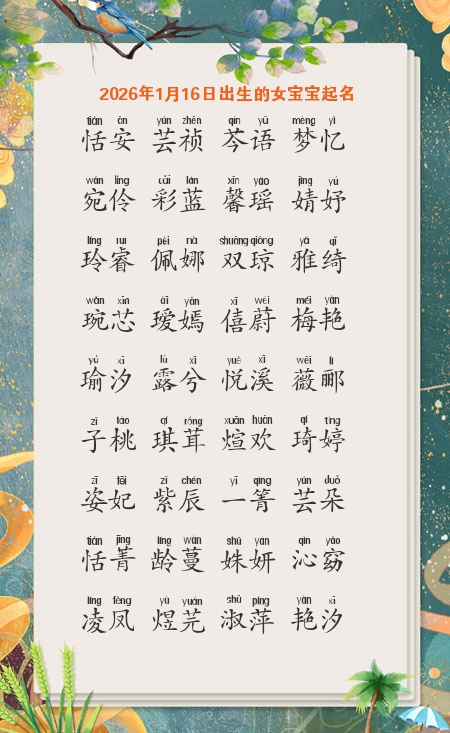 2026年1月16日出生的女宝宝起名
tián ān yún zhēn qín yǔ mèng yì
恬安 芸祯 芩语 梦忆
wǎn líng cǎi lán xīn yáo jìng yú
宛伶 彩蓝 馨瑶 婧妤
líng ruì pèi nà shuāng qióng yǎ qǐ
玲睿 佩娜 双琼 雅绮
wǎn xīn ài yān xī wèi méi yàn
琬芯 瑷嫣 僖蔚 梅艳
yú xī lù xī yuè xī wēi lì
瑜汐 露兮 悦溪 薇郦
zǐ táo qí róng xuān huān qí tíng
子桃 琪茸 煊欢 琦婷
zī fēi zǐ chén yī qìng yún duǒ
姿妃 紫辰 一箐 芸朵
tián jīng líng wàn shū yán qìn yǎo
恬菁 龄蔓 姝妍 沁窈
líng fèng yù yuán shū píng yàn xī
凌凤 煜芫 淑萍 艳汐